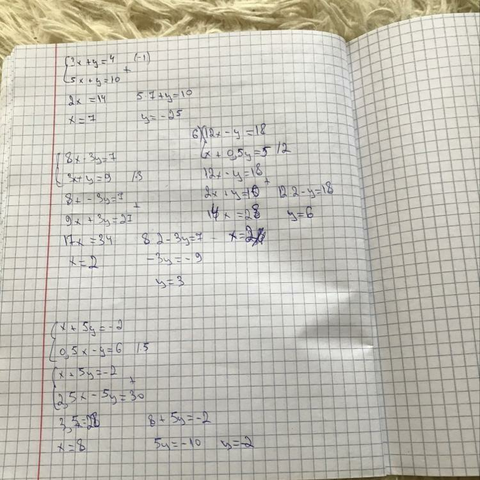 {3x+y=4 (-1)
{5x+y=10 +
2x =14 5·7+y=10
x=7 y=-25
{8x-3y=7
{3x+y=9 /·3
8x-3y=7 +
9x+3y=27
17x=34 8·2-3y=7
x=2 -3y=-9
y=3
б) {12x-y=18
x+0,5y=5 /·2
12x-y=18 +
2x+y=10 12·2-y=18
14x=28 y=6
x=2
{x+5y=-2
{0,5x-y=6 /·5
{x+5y=-2 +
{2,5x-5y=30
3,5=28 8+5y=-2
x=8 5y=-10 y=-2